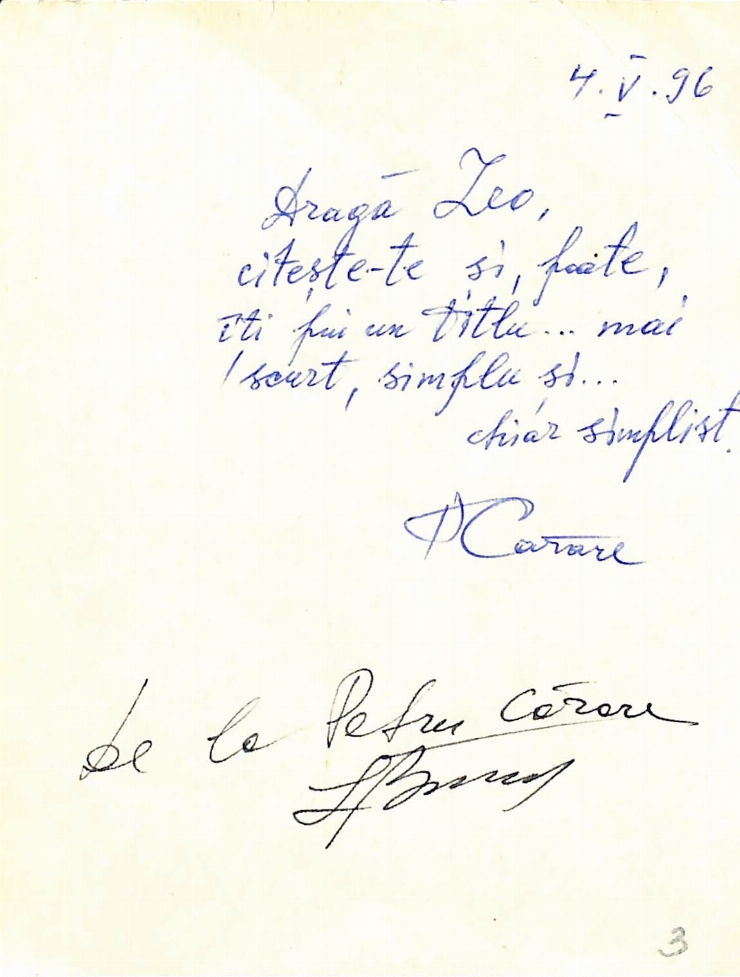 4.V.96
Dragă Leo,
citește-te și, poate,
îți pui un titlu... mai
scurt, simplu și...
chiar simplist.
P Carare
De la Petru Cărare
3